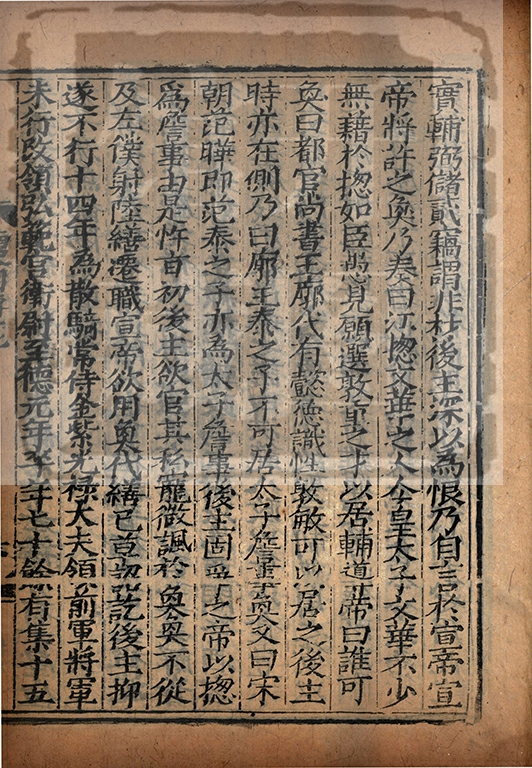 實輔弼儲貳竊謂非材後主深以為恨乃自言於宣帝宣
帝將許之奐乃奏曰江揔文華之人今皇太子文華不少
無藉於揔如臣愚見願選敦重之才以居輔道帝曰誰可
奐曰都官尚書王廓代有懿德識性敦敏可以居之後主
時亦在側乃曰廓王泰之子不可居太子詹事奐又曰宋
朝范曄即范泰之子亦為太子詹事後主固爭之帝以揔
為詹事由是忤旨初後主欲官其私寵微諷於奐奐不從
及左僕射陸繕遷職宣帝欲用奐代繕已草詔訖後主抑
遂不行十四年為散騎常侍金紫光祿大夫領前軍將軍
未行改領弘範宮衛尉至德元年卒年七十餘有集十五